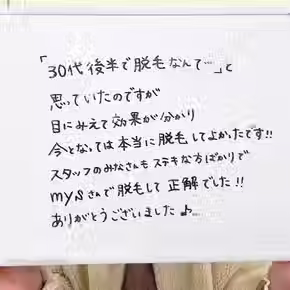 「30代後半で脱毛なんて…」と
思っていたのですが
目にみえて効果が分かり
今となっては本当に脱毛してよかったです!!
スタッフのみなさんもステキな方ばかりで
mysさんで脱毛して正解でした!!
ありがとうございました♪